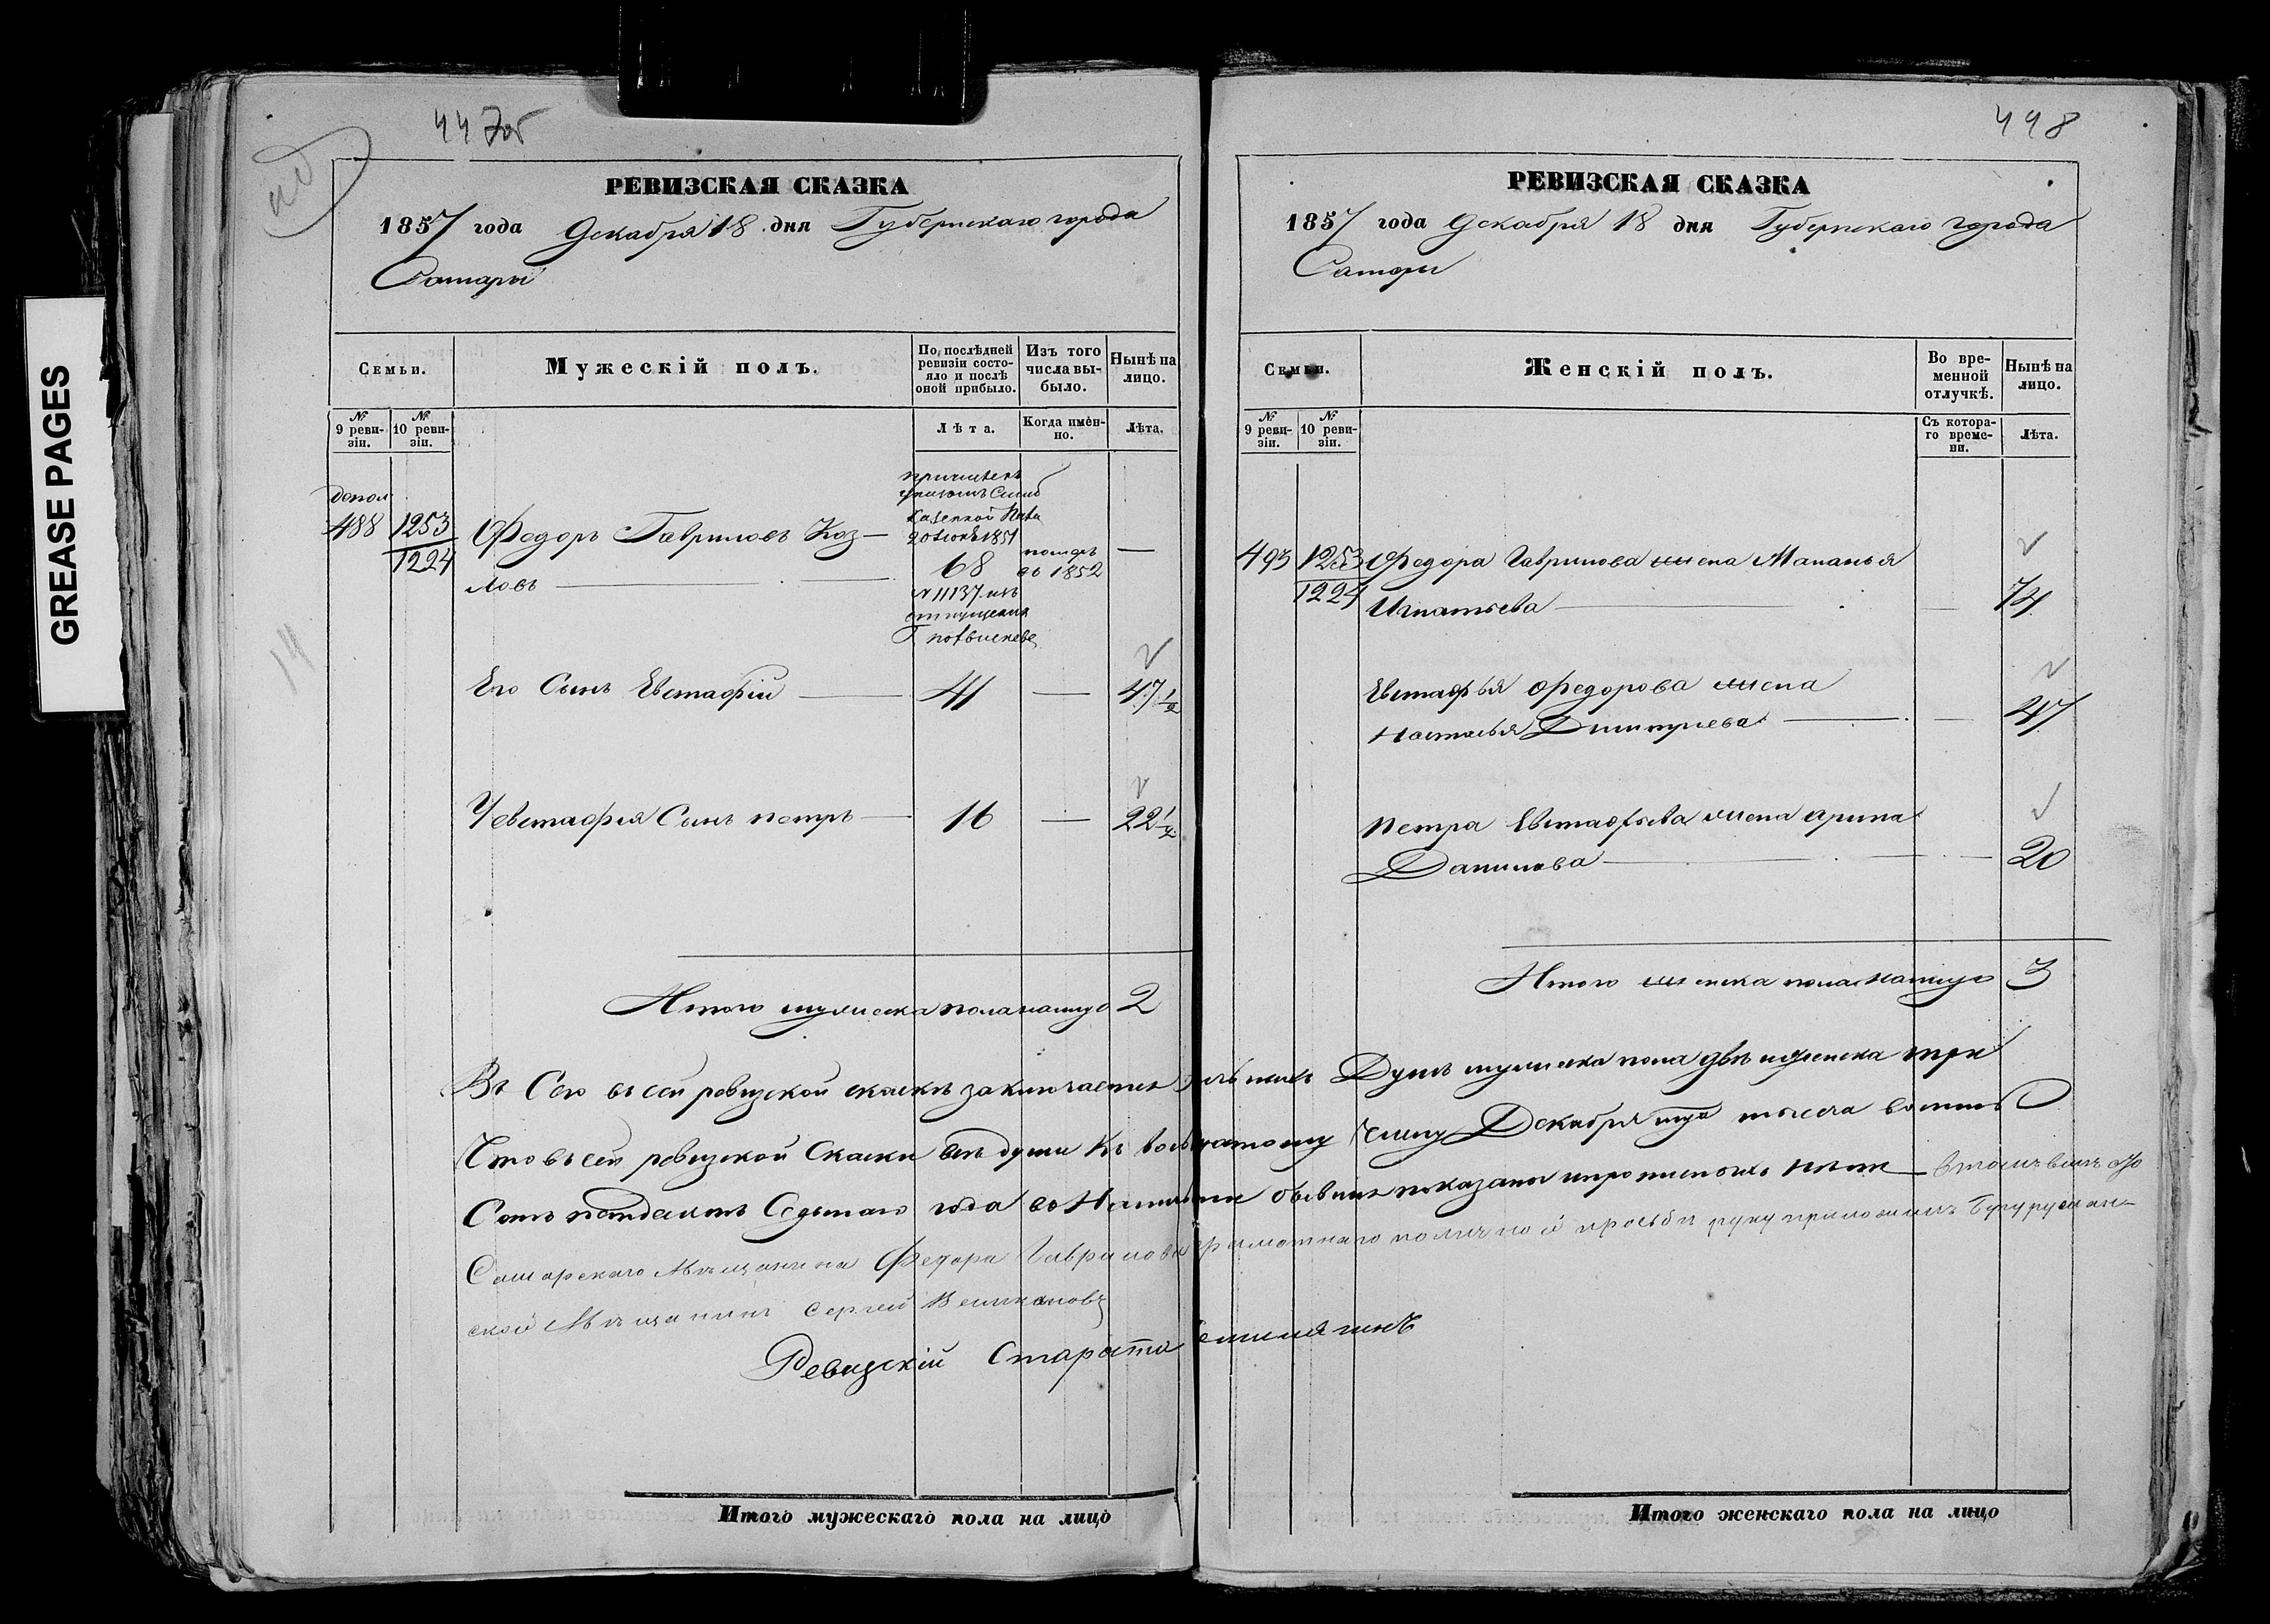 GREASE PAGES
447об
РЕВИЗСКАЯ СКАЗКА
1857 года Декабря 18 дня Губернскаго города
Самары
Семьи.
Мужескій полъ.
По послѣдней ревизіи состо-
яло и послѣ
оной прибыло.
Изъ того
числа вы-
было.
Нынѣ на
лицо.
№ 9 реви-
зіи.
№ 10 реви-
зіи.
Лѣта.
Когда имен-
но.
Лѣта.
допол
488 1253
1224
Федоръ Гавриловъ Коз-
ловъ
причисленъ
Казенной
1851
68
№ 11137 изъ
отпущеннхъ
Г.
1852
—
Его Сынъ Евстафій 41 — 47 1/2
У евстафия Сынъ петръ 16 — 22 1/2
Итого мужеска пола налицо 2
448
РЕВИЗСКАЯ СКАЗКА
1857 года Декабря 18 дня Губернскаго города
Самары
Семьи.
Женскій полъ.
Во вре-
менной
отлучкѣ.
Нынѣ на
лицо.
№ 9 реви-
зіи.
№ 10 реви-
зіи.
Съ котора-
го време-
ни.
Лѣта.
493 1253
1224
Федора Гаврилова жена Маланья
Игнатьева — 74
Евстафья Федорова жена
Настасья Дмитриева — 47
Петра Евстафьева жена арина
Данилова — 20
Итого женска пола налицо 3
Въ Сей ревизской скаскѣ заключается Душъ мужеска пола двѣ и женска три
Что въ сей ревизской Скаски всѣ души къ числу Декабря тысеча восемь
Сотъ пятдесятъ Седьмаго года въ показаны въ томъ вмѣсто
Самарскаго Мѣщанина Федора Гаврилова по личной прозьби руку приложилъ Бугуруслан-
ской Мѣщанинъ Сергей Великановъ
Ревизскій Староста
Итого мужескаго пола на лицо
Итого женскаго пола на лицо